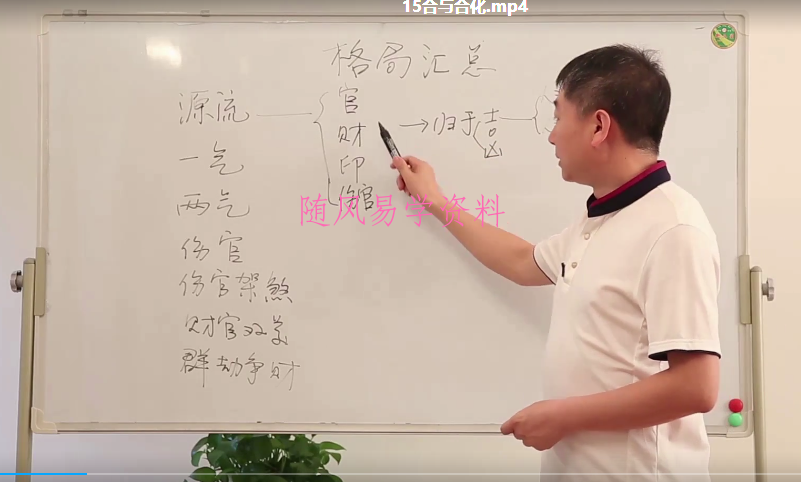 15合与合化.mp4
格局汇总
源流
官
财
印
伤官
→归于吉
凶
一气
两气
伤官
伤官架煞
财官双美
群劫争财
随风易学资料